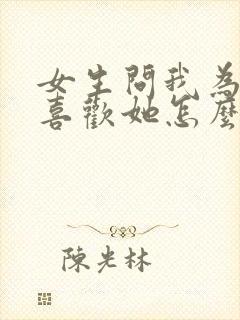 女生問我為
喜歡她怎麼
陳光林